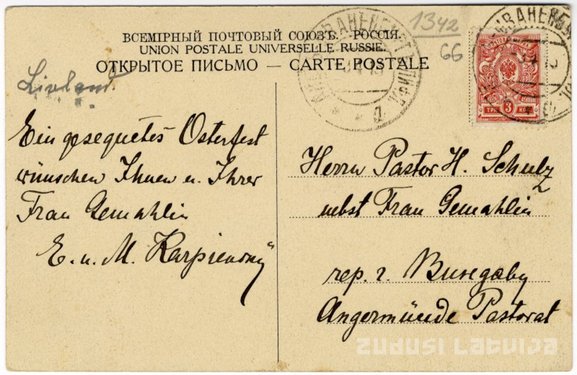 1342
66
ВСЕМІРНЫЙ ПОЧТОВЫЙ СОЮЗЪ. РОССІЯ.
UNION POSTALE UNIVERSELLE RUSSIE.
ОТКРЫТОЕ ПИСЬМО — CARTE POSTALE
Livland
Ein gesegnetes Osterfest
wünschen Ihnen u. Ihrer
Frau Gemahlin
E. u. M.
Herrn Pastor H. Schulz
nebst Frau Gemahlin
гор. г. Виндаву
Angermünde Pastorat
3
Zudusi Latvija